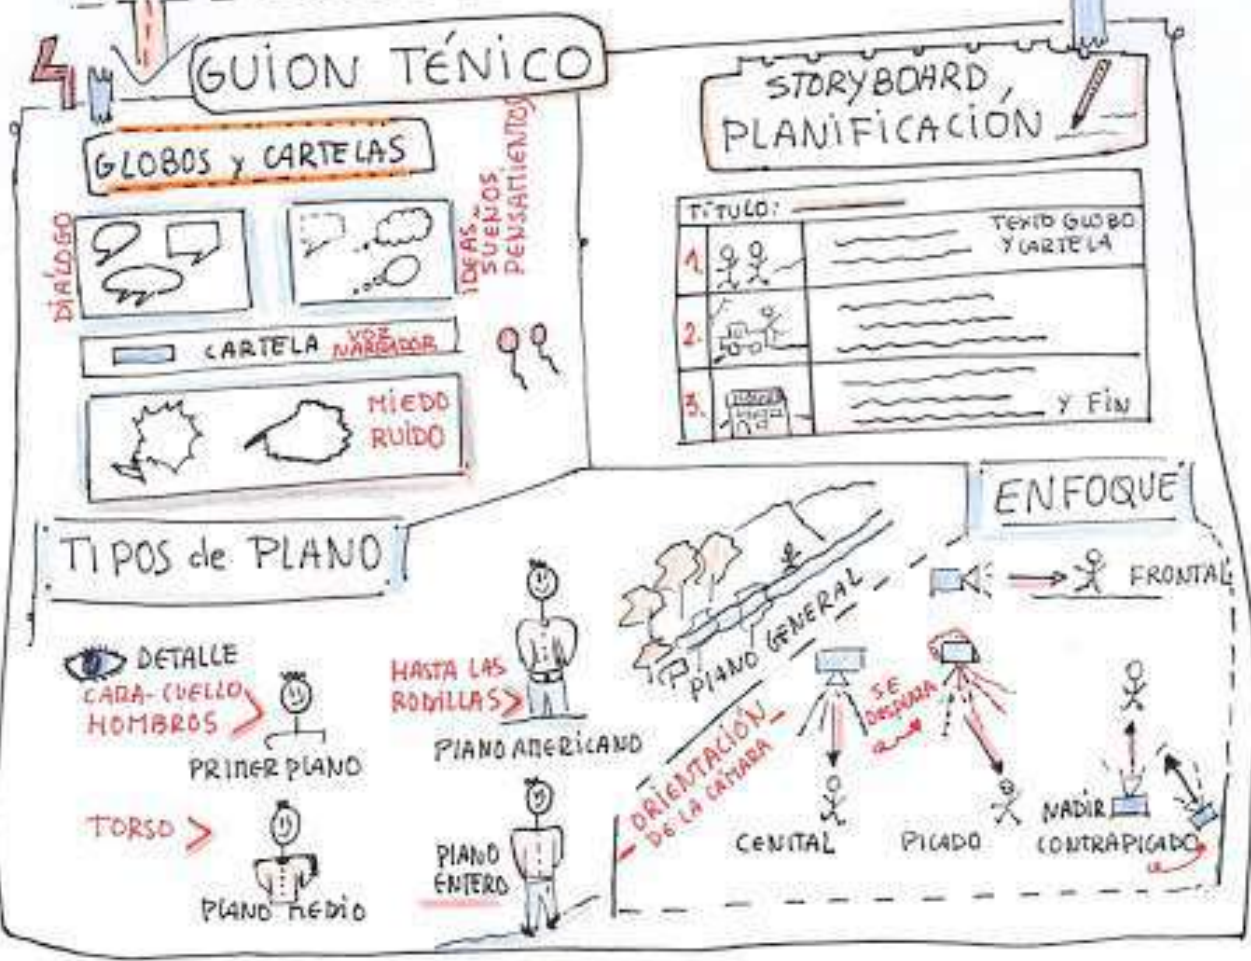 4
GUION TÉNICO
GLOBOS y CARTELAS
DIÁLOGO
IDEAS,
SUEÑOS,
PENSAMIENTOS
CARTELA VOZ
NARRADOR
MIEDO
RUIDO
STORYBOARD,
PLANIFICACIÓN
TíTULO:
TEXTO GLOBO
Y CARTELA
1.
2.
3.
Y FIN
TIPOS de PLANO
DETALLE
CARA-CUELLO
HOMBROS
PRIMER PLANO
HASTA LAS
RODILLAS
PLANO AMERICANO
TORSO
PLANO MEDIO
PLANO
ENTERO
PLANO GENERAL
ENFOQUE
ORIENTACIÓN
DE LA CÁMARA
FRONTAL
SE
CENITAL
PICADO
NADIR
CONTRAPICADO